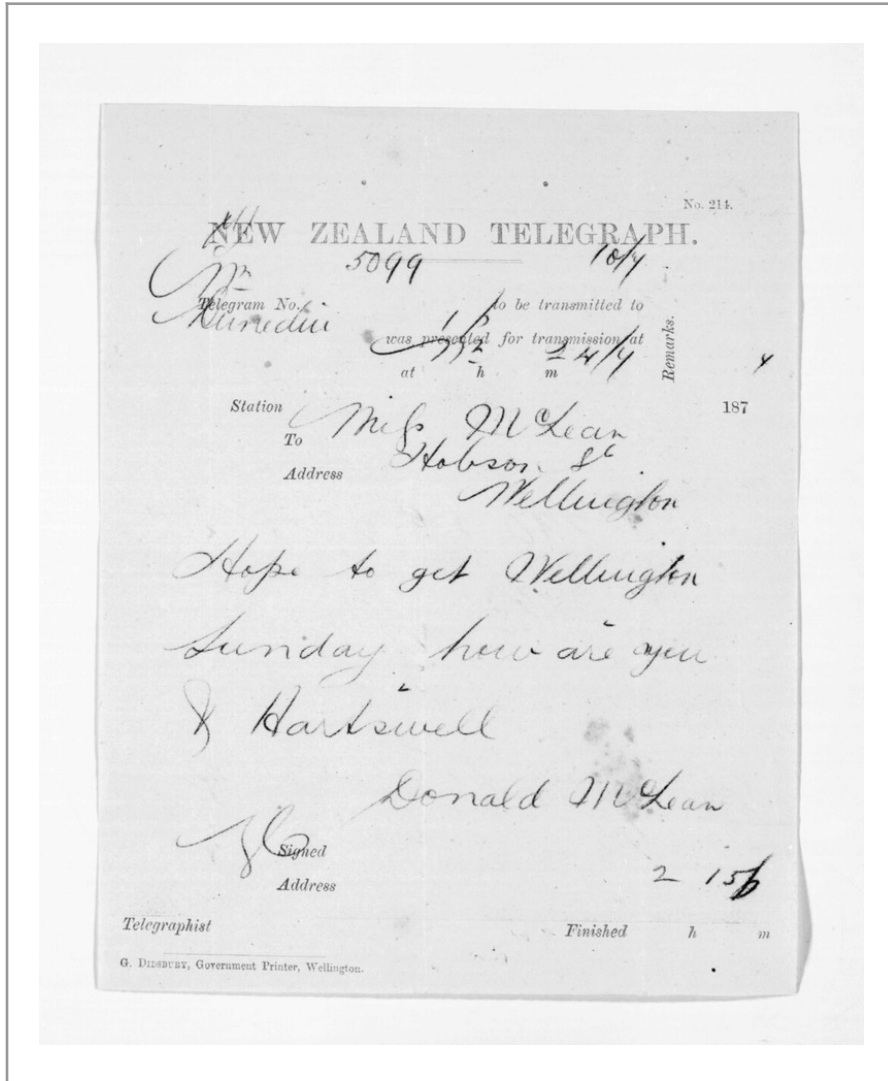 No. 214.
NEW ZEALAND TELEGRAPH.
5099 10/4
Telegram No. to be transmitted to
Dunedin
was presented for transmission at
at h m 24/4
Remarks.
Station 187 4
To Miss McLean
Address Hobson St
Wellington
Hope to get Wellington
Sunday how are you
& Hart's well
Donald McLean
Signed
Address
2 15p
Telegraphist Finished h m
G. DIDSBURY, Government Printer, Wellington.